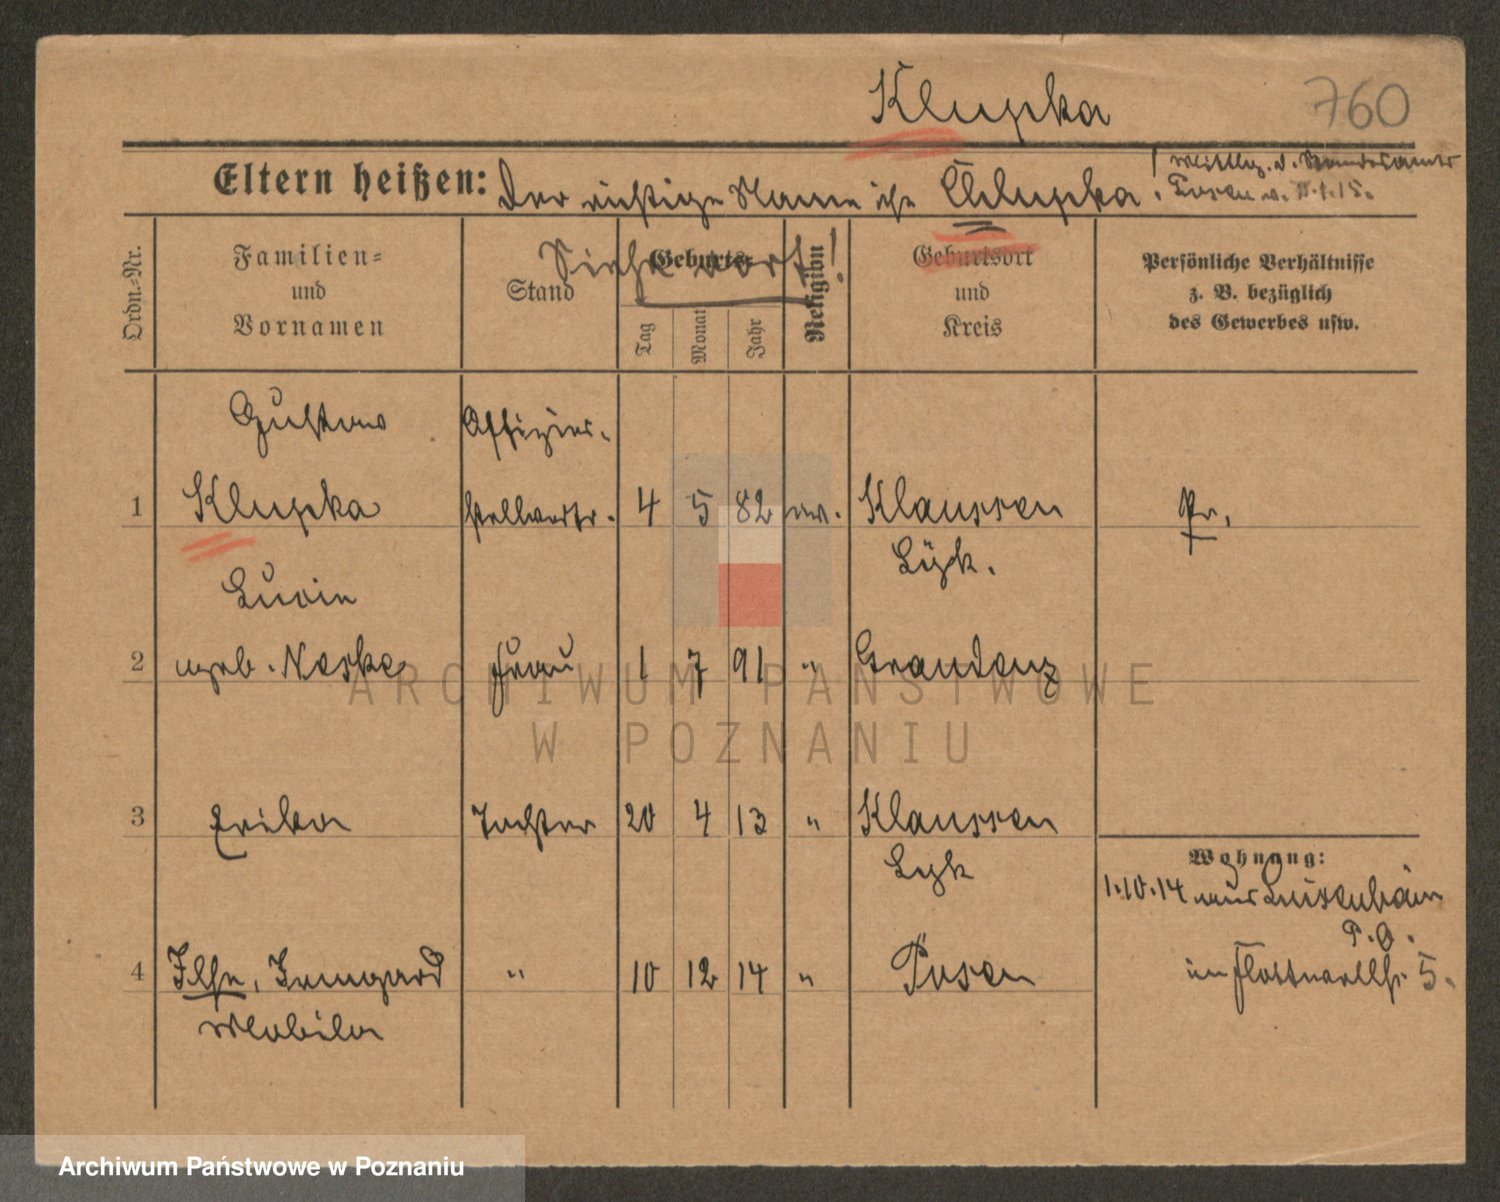 Klupka
760
Eltern heißen: Der richtige Name ist Chlupka.
(Mittlg. d. Standesamts
Posen v.
Siehe dort!
Ordn.-Nr.
Familien-
und
Vornamen
Stand
Geburts-
Tag
Monat
Jahr
Religion
Geburtsort
und
Kreis
Persönliche Verhältnisse
z. B. bezüglich
des Gewerbes usw.
Gustav Offizier-
1 Klupka stellvertr. 4 5 82 ev. Klaussen Pr.
Lyck.
2 geb. Neske Frau 1 7 91 " Graudenz
3 Erika Tochter 20 4 13 " Klaussen
Lyck
Wohnung:
1.10.14 aus Luisenhain
P. O.
4 Ilse, Irmgard " 10 12 14 " Posen
in Flottwellstr. 5.
Archiwum Państwowe w Poznaniu
ARCHIWUM PAŃSTWOWE
W POZNANIU